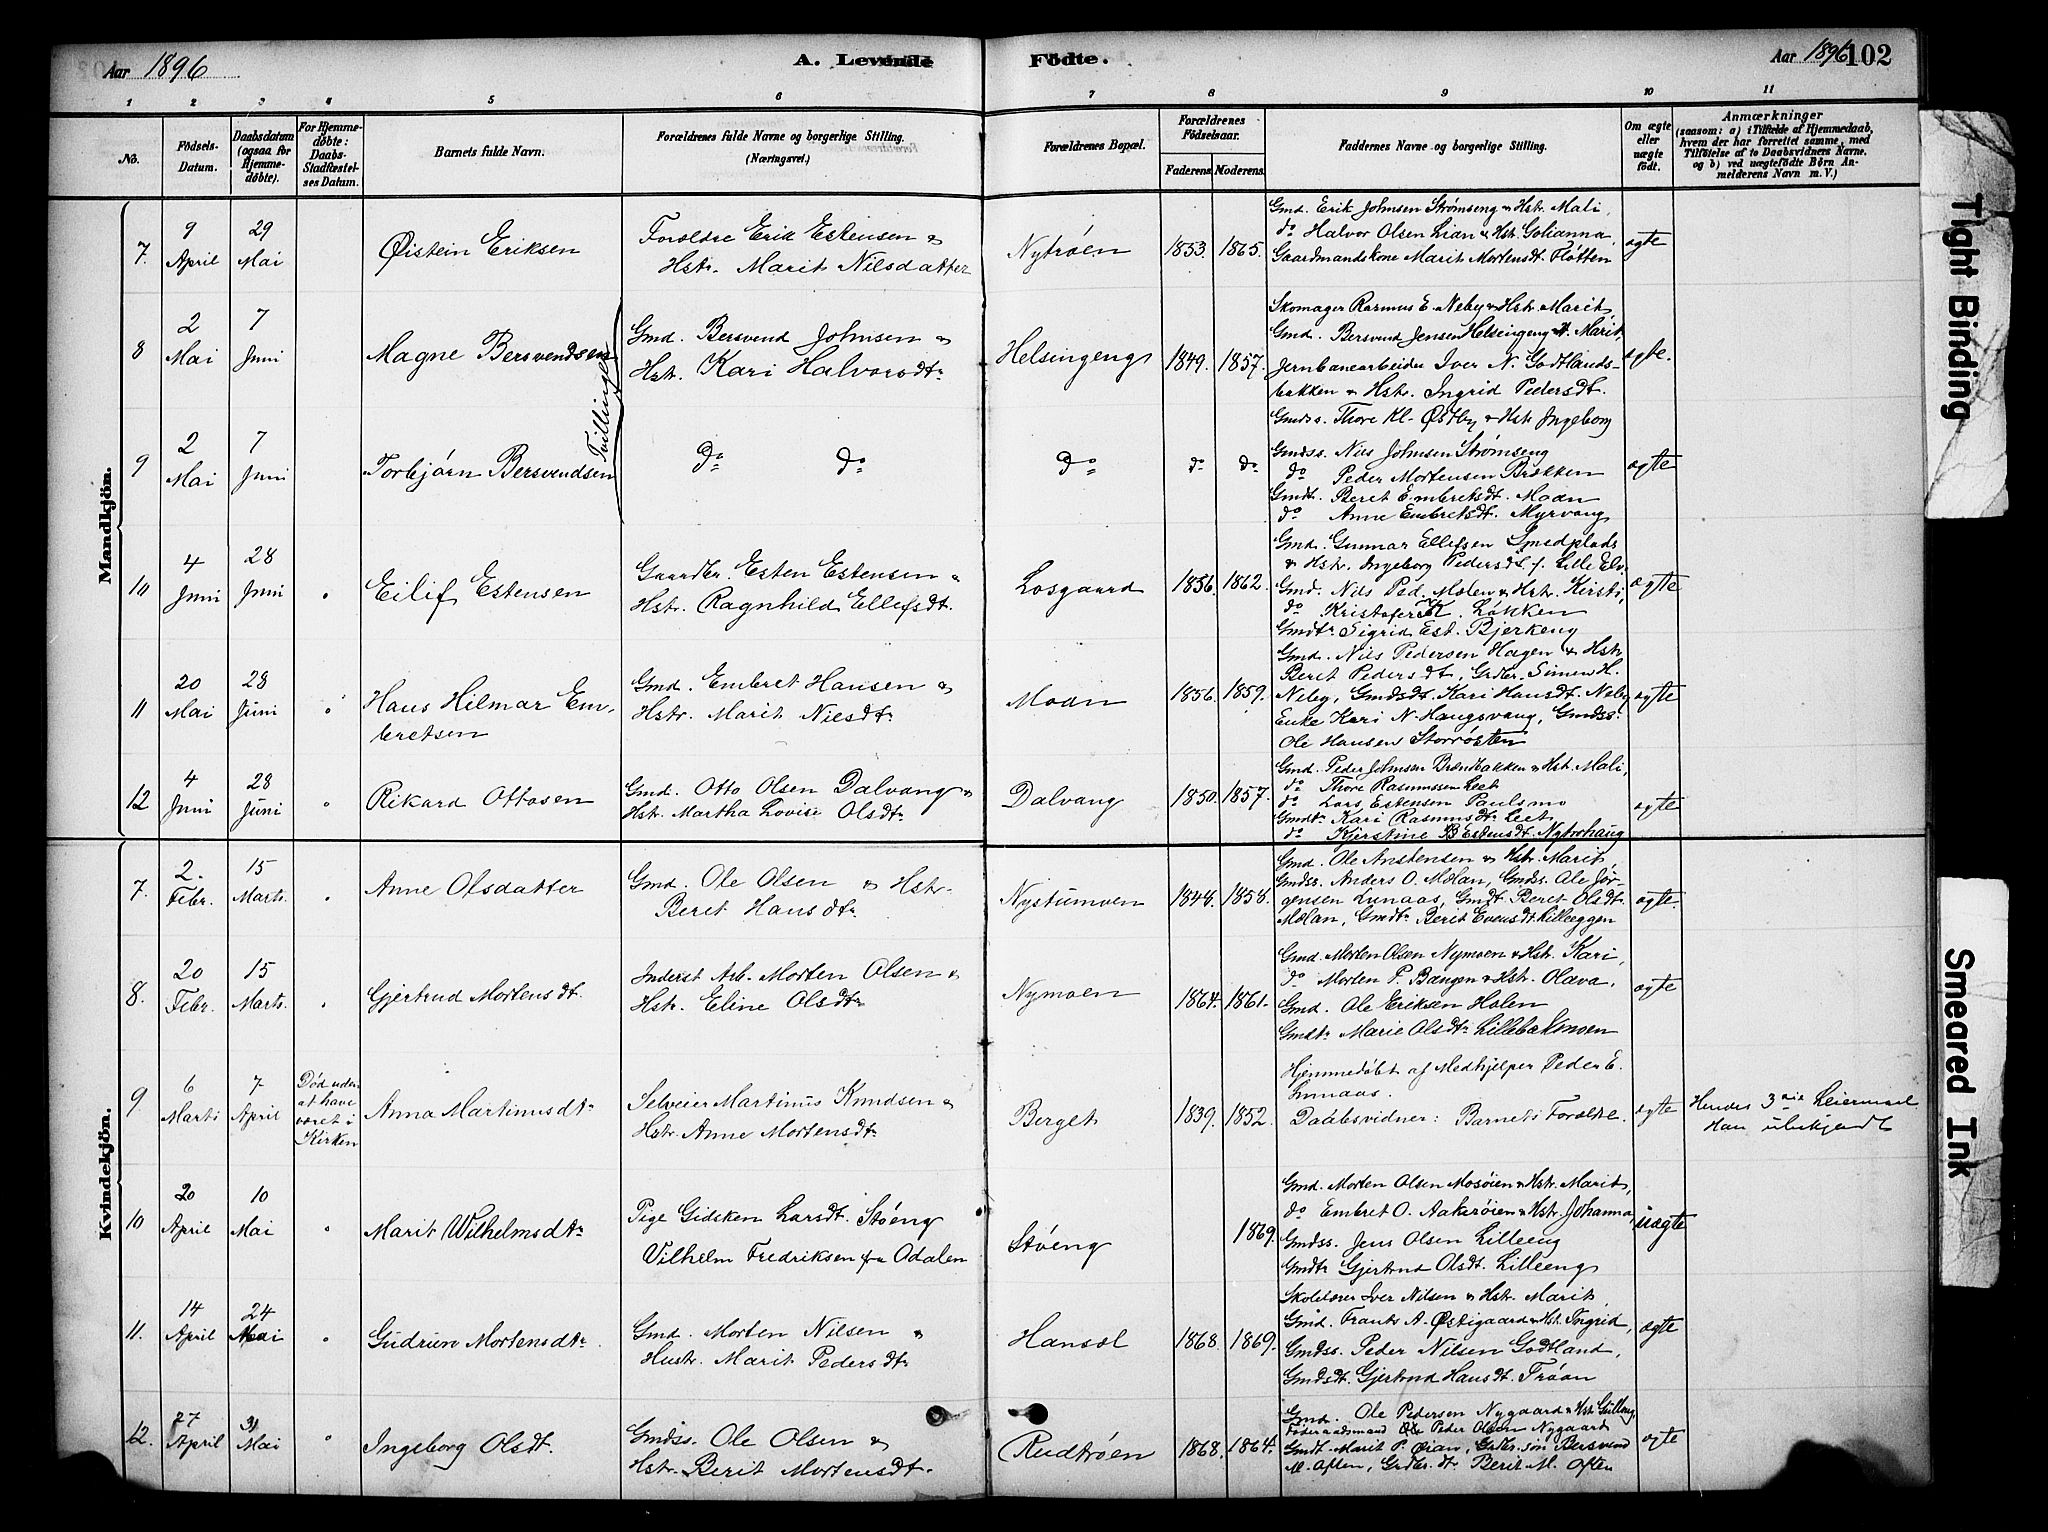 Aar 1896
A. Levende Födte.
Aar 1896 102
1 2 3 4 5 6 7 8 9 10 11
No.
Födsels-Datum.
Daabsdatum (ogsaa for Hjemme-döbte).
For Hjemme-döbte: Daabs-Stadfæstel-ses Datum.
Barnets fulde Navn.
Forældrenes fulde Navne og borgerlige Stilling. (Næringsvei.)
Forældrenes Bopæl.
Forældrenes Födselsaar.
Faderens. Moderens.
Faddernes Navne og borgerlige Stilling.
Om ægte eller uægte født.
Anmærkninger
(saasom: a) i Tilfælde af Hjemmedaab, hvem der har forrettet samme, med Tilföielse af to Daabsvidners Navne. og b) ved uægtefödte Børn An-melderens Navn m. V.)
Mandkjön.
7. 9 April 29 Mai Øistein Eriksen
Forældre Erik Estensen &
Hstr. Marit Nilsdatter
Nytrøen 1853. 1865.
Gmd. Erik Johnsen Strømseng & Hstr. Mali,
do Halvor Olsen Lian & Hstr. Golianna,
Gaardmandskone Marit Mortensdt. Fløtten
ægte
8 2 Mai 7 Juni Magne Bersvendsen
Tvillinger
Gmd. Bersvend Johnsen &
Hstr. Kari Halvorsdtr
Helsingeng 1849. 1857.
Skomager Rasmus E. Neby & Hstr. Marit,
Gmd. Bersvend Jensen Helsingeng & H. Marit,
Jernbanearbeider Iver N. Godtlands-
bakken & Hstr. Ingrid Pedersdt.
Gmdss. Thore Kl. Østby & Hstr Ingeborg
ægte.
9 2 Mai 7 Juni Torbjørn Bersvendsen
do do
do do do
Gmdss. Nils Johnsen Strømseng
do Peder Mortensen Brækken
Gmdt. Beret Embretsdt. Moan
do Anne Embretsdt. Myrvang
ægte
10 4 Juni 28 Juni " Eilif Estensen
Gaardbr. Esten Estensen &
Hstr. Ragnhild Ellefsdt.
Losgaard 1856. 1862.
Gmd. Gunnar Ellefsen Smedplads
& Hstr. Ingeborg Pedersdt. f. Lille Elv.
Gmd. Nils Ped. Mælen & Hstr. Kirsti,
do Kristofer K. Løkken
Gmdtr Sigrid Est. Bjerkeng
ægte
11 20 Mai 28 Juni " Hans Hilmar Em-
bretsen
Gmd. Embret Hansen &
Hstr. Marit Nilsdtr
Moan 1856. 1859.
Gmd. Nils Pedersen Hagen & Hstr
Beret Pedersdt, Grdbr. Simen H.
Neby, Gmdsdt. Kari Hansdt. Neby
Enke Kari N. Haugsvang, Gmdss.
Ole Hansen Storrøsten
ægte
12 4 Juni 28 Juni " Rikard Ottosen
Gmd. Otto Olsen Dalvang &
Hstr. Martha Lovise Olsdtr
Dalvang 1850. 1857.
Gmd. Peder Johnsen Brændbakken & Hst. Mali,
do Thore Rasmussen Leet
do Lars Estensen Paulsmo
Gmdtr Kari Rasmusdtr Leet
do Kjerstine B Estensdt. Nytorhaug
ægte
Kvindekjön.
7. 2. Febr. 15 Marts. " Anne Olsdatter
Gmd. Ole Olsen & Hstr.
Beret Hansdtr
Nystumoen 1848. 1858.
Gmd. Ole Anstensen & Hstr. Marit,
Gmdss. Anders O. Mælan, Gmdss. Ole Jør-
gensen Lunaas, Gmdt Beret Olsdt.
Mælan, Gmdtr Berit Evensdt. Lilleeggen
ægte.
8. 20 Febr. 15 Marts. " Gjertrud Mortensdt.
Inderst Arb. Morten Olsen &
Hstr. Eline Olsdtr
Nymoen 1864. 1861.
Gmd. Morten Olsen Nymoen & Hstr. Kari,
do Morten P. Bangen & Hstr. Olava,
Gmd. Ole Eriksen Holen
Gmdtr Marie Olsdtr Lillebækmoen
ægte
9 6 Marts 7 April
Død uden
at have
været i
Kirken
Anna Martinusdtr
Selveier Martinus Knudsen &
Hstr. Anne Mortensdtr
Berget 1839. 1852.
Hjemmedøbt af Medhjelper Peder E.
Lunaas.
Daabsvidner: Barnets Forældre.
ægte
Hendes 3die Leiermaal
Han ubekjendt
10 20 April 10 Mai " Marit Wilhelmsdtr
Pige Gidsken Larsdt. Støeng
Vilhelm Fredriksen fra Odalen
Støeng 1869.
Gmd. Morten Olsen Mosøien & Hstr. Marit,
do Embret O. Aakrøien & Hstr Johanna,
Gmdss. Jens Olsen Lilleeng
Gmdtr Gjertrud Olsdt. Lilleeng
uægte
11. 14 April 24 Mai " Gudrun Mortensdtr
Gmd. Morten Nilsen &
Hustr. Marit Pedersdtr
Hansæl 1868. 1869.
Skolelærer Iver Nilsen & Hstr. Marit,
Gmd. Frants A. Østigaard & Hst. Ingrid,
Gmdss. Peder Nilsen Godtland,
Gmdsdt. Gjertrud Hansdt. Trøan
ægte
12. 27 April 31 Mai " Ingeborg Olsdt.
Gmdss. Ole Olsen &
Hstr. Berit Mortensdt.
Rudtrøen 1868. 1864.
Gmd. Ole Pedersen Nygaard & Hst Gulleng,
Føderaadsmand Peder Olsen Nygaard
Gmdt. Marit P. Øian, Grdbr. søn Bersvend
M. Aften, Grdbr. dt. Berit M. Aften
ægte
Tight Binding
Smeared Ink